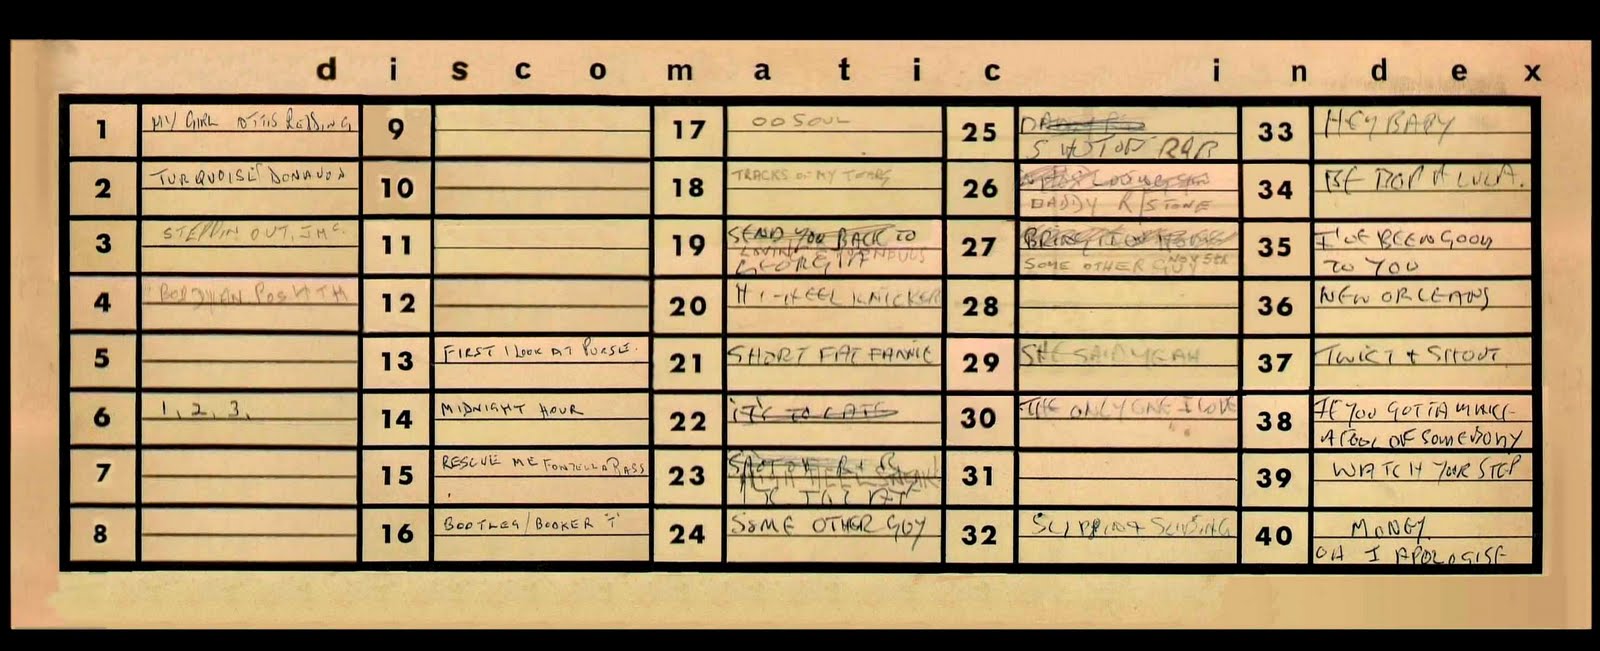 discomatic index
1 MY GIRL OTTIS REDDING
2 TURQUOISE DONAVON
3 STEPPIN OUT, J MC.
4
5
6 1, 2, 3.
7
8
9
10
11
12
13 FIRST I LOOK AT PURSE.
14 MIDNIGHT HOUR
15 RESCUE ME FONTELLA BASS
16 BOOTLEG/BOOKER 'T'
17 OO SOUL
18 TRACKS OF MY TEARS
19 SEND YOU BACK TO
GEORGIA
20 HI-HEEL KNICKER
21 SHORT FAT FANNIE
22 IT'S TO LATE
23
24 SOME OTHER GUY
25
SHOT OF R&B
26
DADDY R/STONE
27 BRING IT ON HOME
SOME OTHER GUY
28
29 SHE SAID YEAH
30 THE ONLY ONE I LOVE
31
32 SLIPPIN + SLIDING
33 HEY BABY
34 BE BOP A LULA.
35 I'VE BEEN GOOD
TO YOU
36 NEW ORLEANS
37 TWIST + SHOUT
38 IF YOU GOTTA MAKE
A FOOL OF SOMEBODY
39 WATCH YOUR STEP
40 MONEY
OH I APOLOGISE